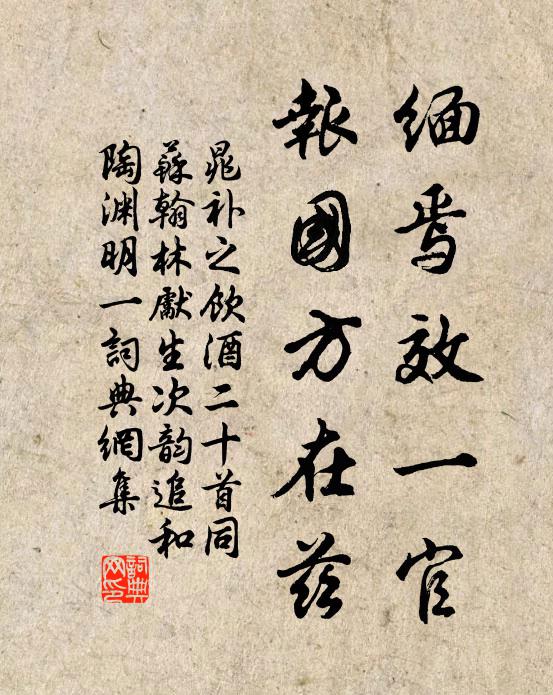 缅焉效一官
報國方在茲
晁补之飲酒二十首同
蘇翰林獻生次韵追和
陶渊明一詞典網集
詞典网印